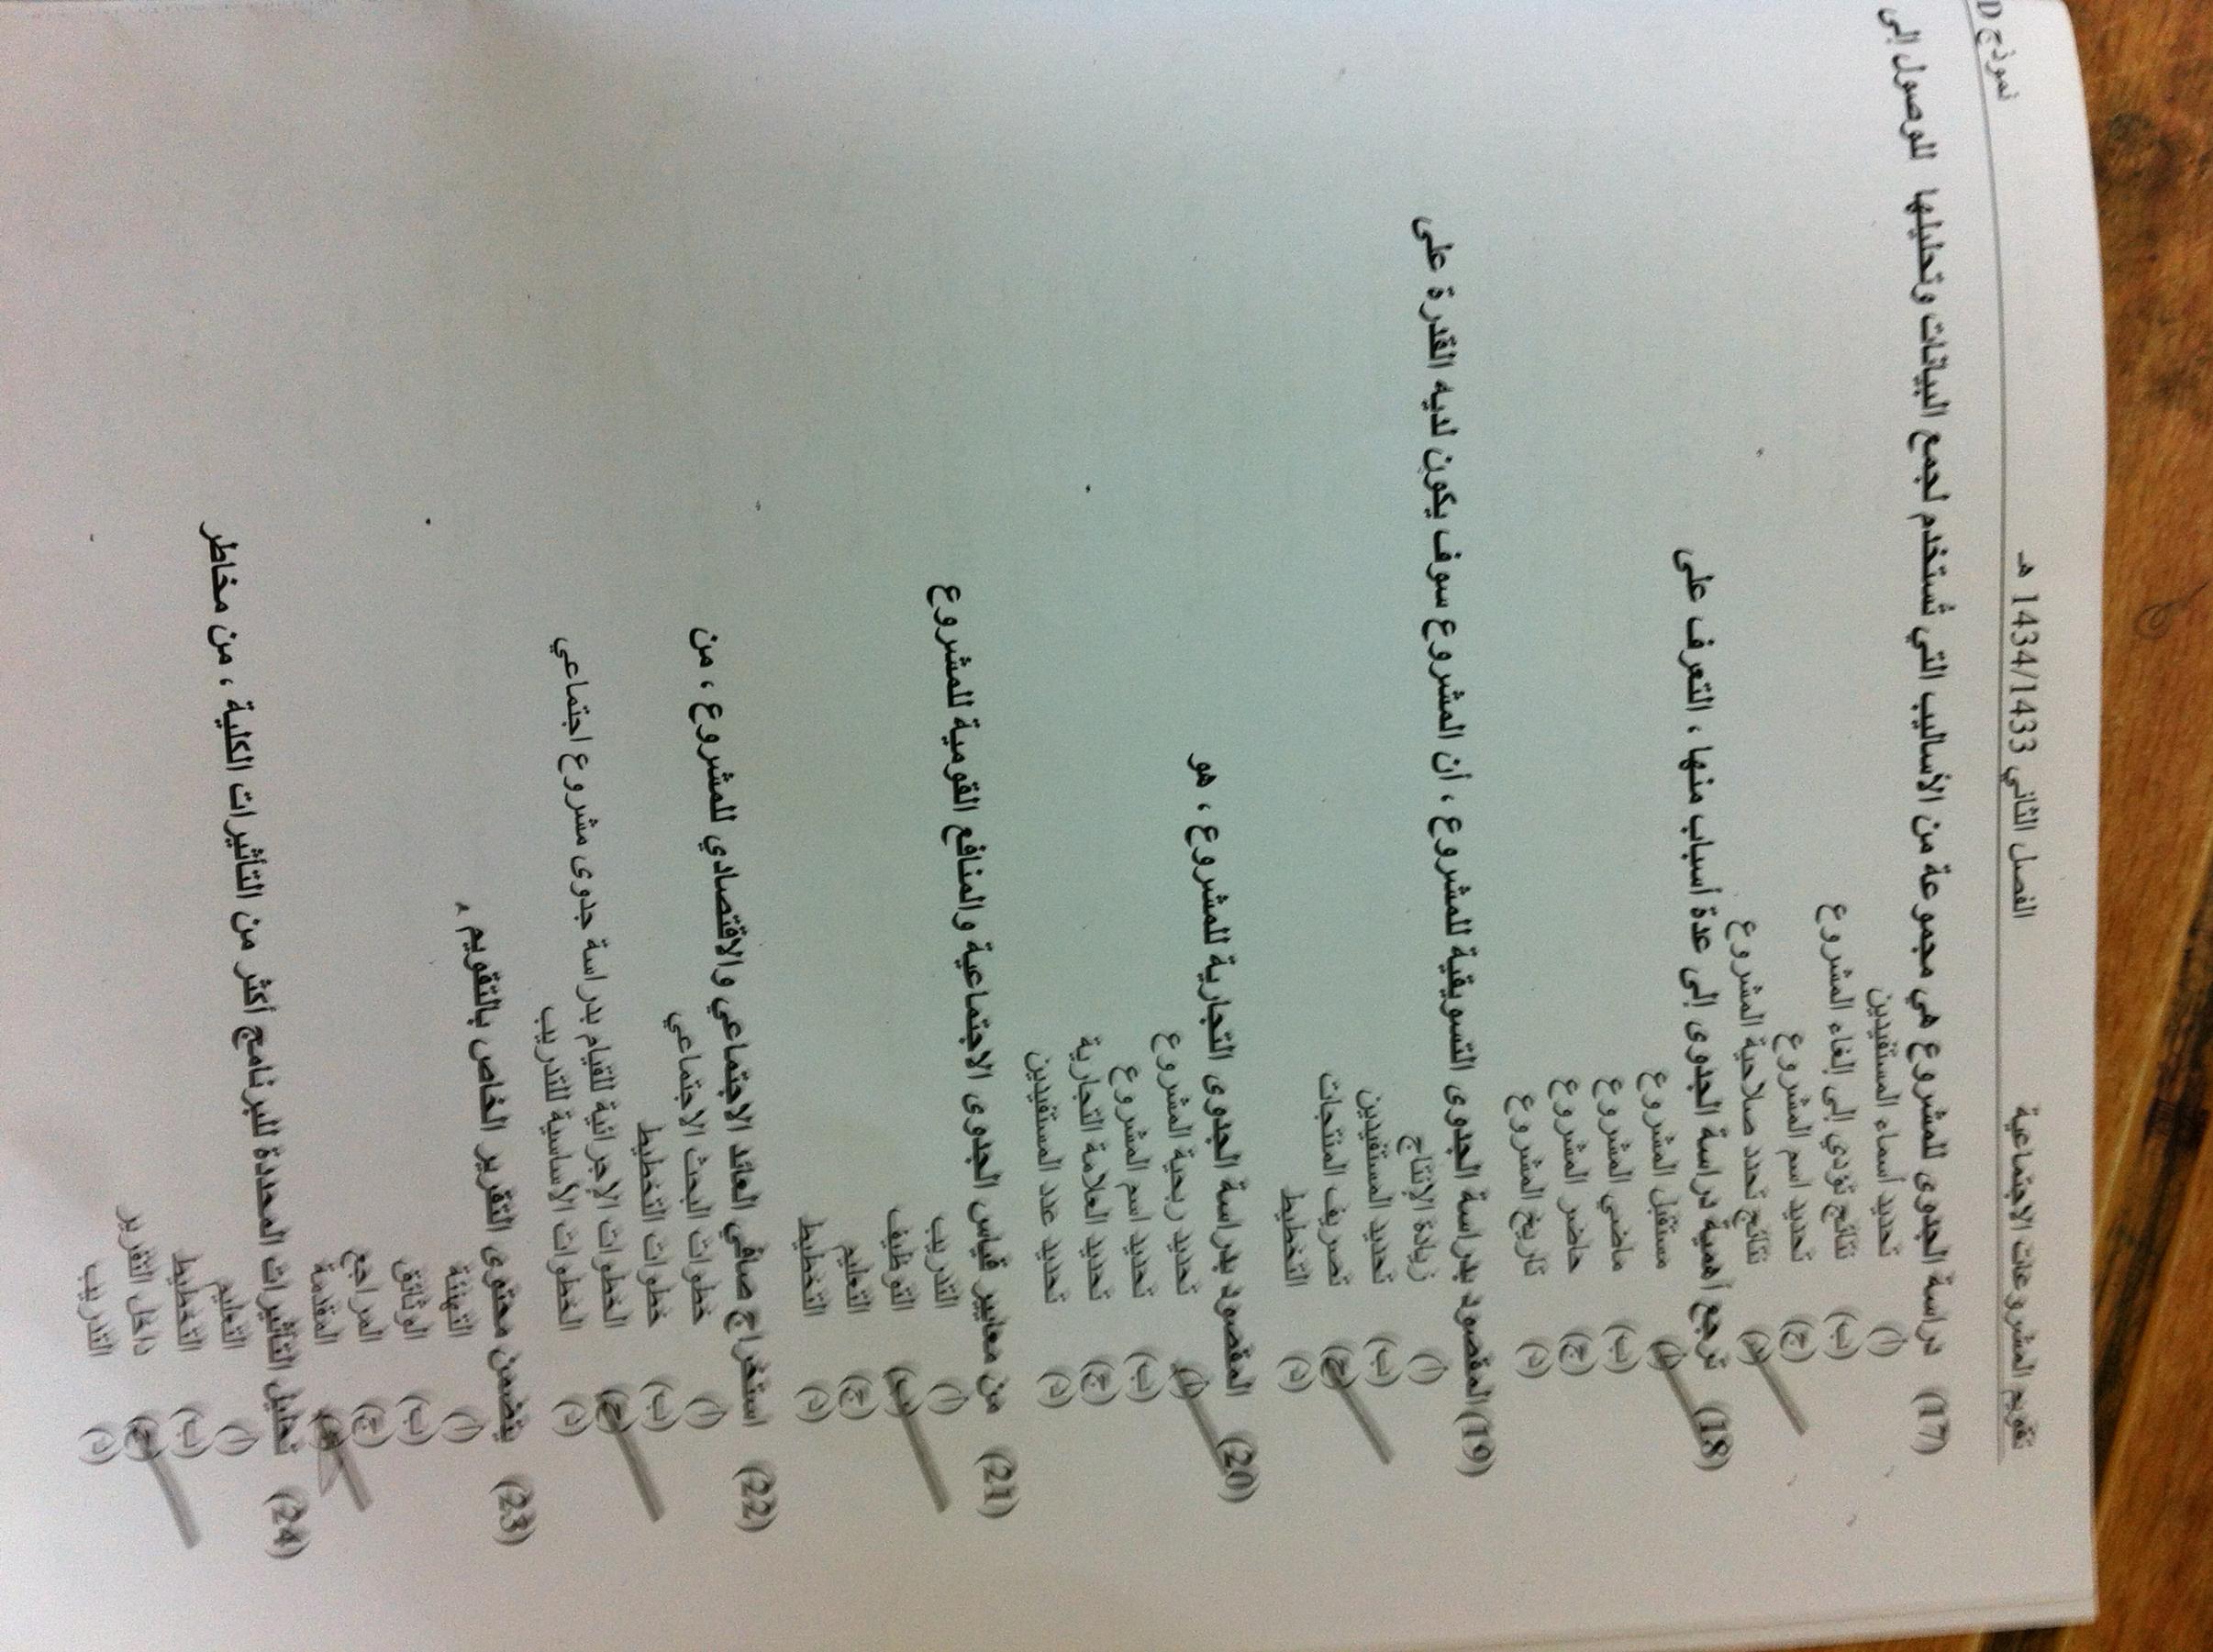 تقويم المشروعات الاجتماعية الفصل الثاني 1434/1433 هـ نموذج D
(17) دراسة الجدوى للمشروع هي مجموعة من الأساليب التي تستخدم لجمع البيانات وتحليلها للوصول إلى
(أ) تحديد أسماء المستفيدين
(ب) نتائج تؤدي إلى إلغاء المشروع
(ج) تحديد اسم المشروع
(د) نتائج تحدد صلاحية المشروع
(18) ترجع أهمية دراسة الجدوى إلى عدة أسباب منها ، التعرف على
(أ) مستقبل المشروع
(ب) ماضي المشروع
(ج) حاضر المشروع
(د) تاريخ المشروع
(19) المقصود بدراسة الجدوى التسويقية للمشروع ، أن المشروع سوف يكون لديه القدرة على
(أ) زيادة الإنتاج
(ب) تحديد المستفيدين
(ج) تصريف المنتجات
(د) التخطيط
(20) المقصود بدراسة الجدوى التجارية للمشروع ، هو
(أ) تحديد ربحية المشروع
(ب) تحديد اسم المشروع
(ج) تحديد العلامة التجارية
(د) تحديد عدد المستفيدين
(21) من معايير قياس الجدوى الاجتماعية والمنافع القومية للمشروع
(أ) التدريب
(ب) التوظيف
(ج) التعليم
(د) التخطيط
(22) استخراج صافي العائد الاجتماعي والاقتصادي للمشروع ، من
(أ) خطوات البحث الاجتماعي
(ب) خطوات التخطيط
(ج) الخطوات الإجرائية للقيام بدراسة جدوى مشروع اجتماعي
(د) الخطوات الأساسية للتدريب
(23) يتضمن محتوى التقرير الخاص بالتقويم
(أ) التهنئة
(ب) الوثائق
(ج) المراجع
(د) المقدمة
(24) تحليل التأثيرات المحددة للبرنامج أكثر من التأثيرات الكلية ، من مخاطر
(أ) التعليم
(ب) التخطيط
(ج) داخل التقرير
(د) التدريب